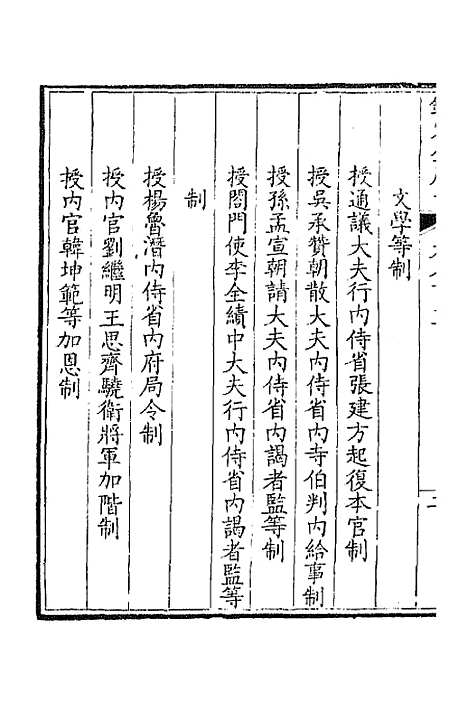 文學等制
授通議大夫行內侍省張建方起復本官制
授吳承贊朝散大夫內侍省內寺伯判內給事制
授孫孟宣朝請大夫內侍省內謁者監等制
授閤門使李全績中大夫行內侍省內謁者監等
制
授楊魯潛內侍省內府局令制
授內官劉繼明王思齊驍衛將軍加階制
授內官韓坤範等加恩制